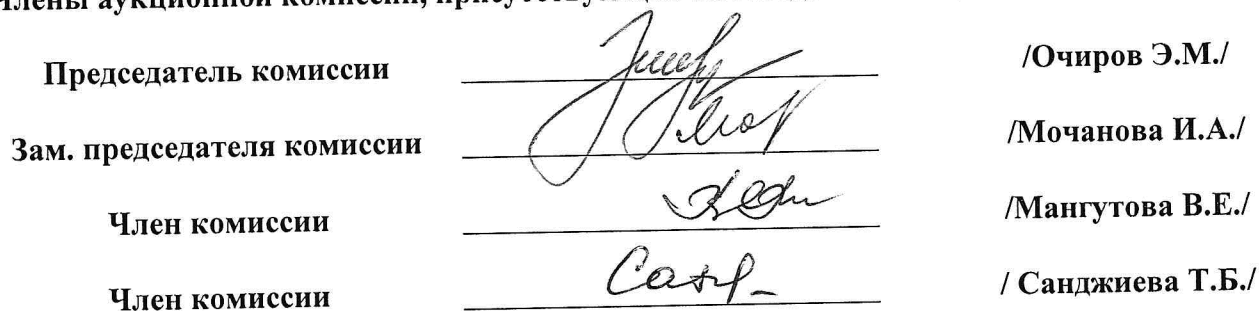 Члены аукционной комиссии, присутствующие
Председатель комиссии /Очиров Э.М./
Зам. председателя комиссии /Мочанова И.А./
Член комиссии /Мангутова В.Е./
Член комиссии / Санджиева Т.Б./